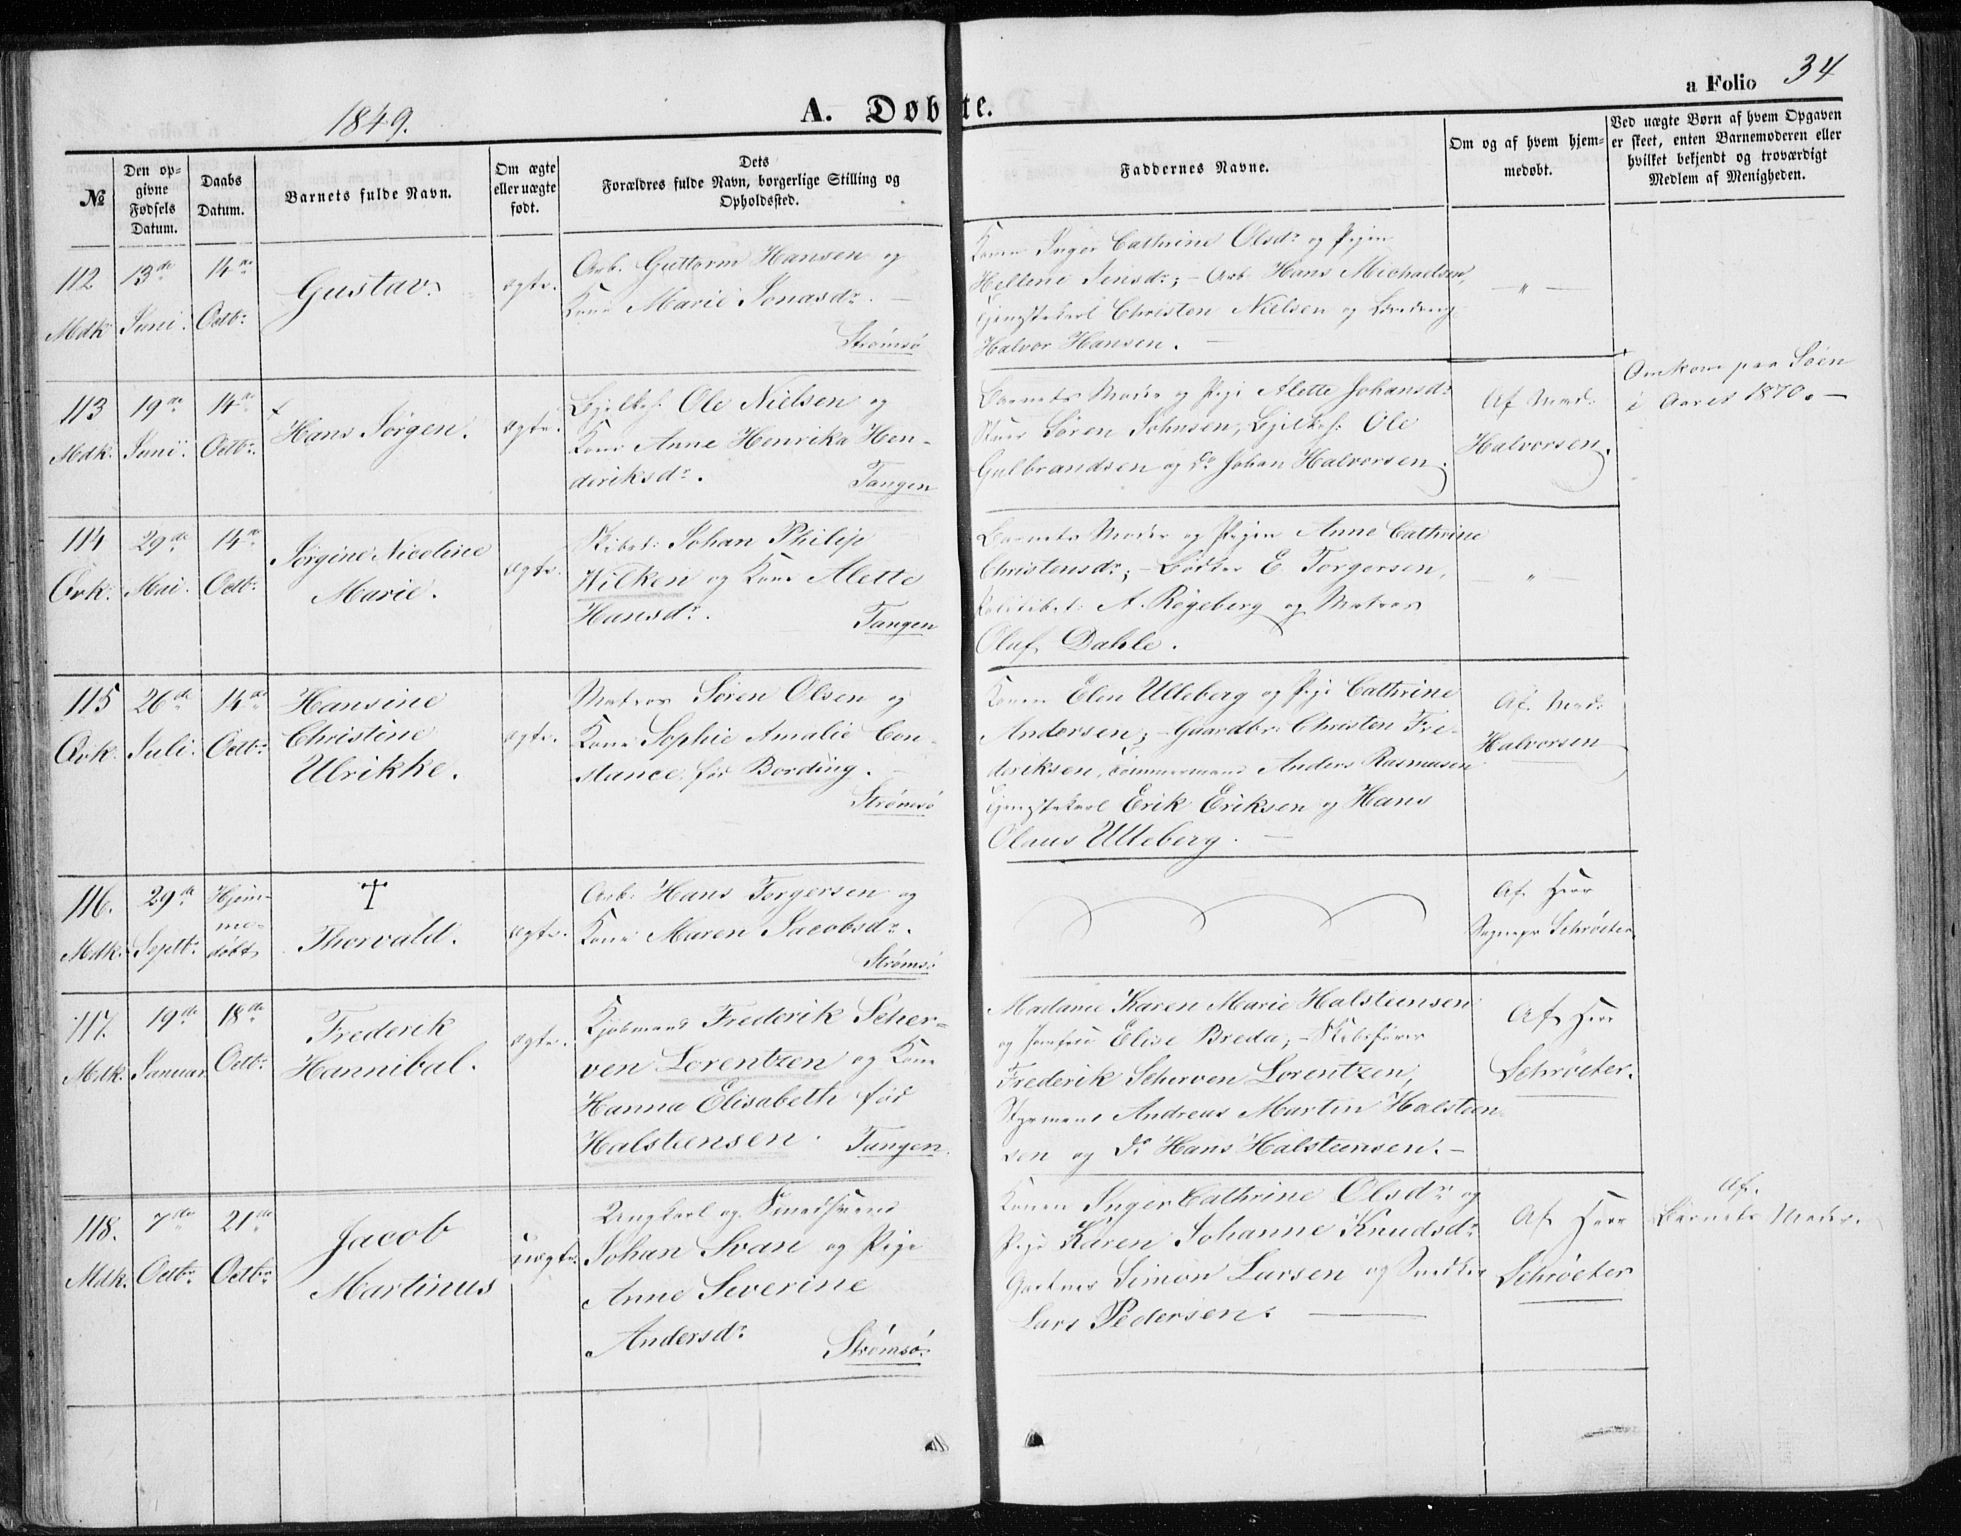 1849.
A. Døbte.
a Folio 34
№
Den op-
givne
Fødsels
Datum.
Daabs
Datum.
Barnets fulde Navn.
Om ægte
eller uægte
født.
Dets
Forældres fulde Navn, borgerlige Stilling og
Opholdssted.
Faddernes Navne.
Om og af hvem hjem-
medøbt.
Ved uægte Børn af hvem Opgaven
er skeet, enten Barnemoderen eller
hvilket bekjendt og troværdigt
Medlem af Menigheden.
112
Mdk.
13de
Juni.
14de
Octbr.
Gustav.
ægte.
Arb. Guttorm Hansen og
Kone Marie Jonasdr. —
Strømsø
Konen Inger Cathrine Olsdr. og Pigen
Hellene Jensdr; – Arb. Hans Michaelsen,
Tjenestekarl Christen Nielsen og
Halvor Hansen. —
— " —
113
Mdk.
19de
Juni.
14de
Octbr.
+
Hans Jørgen.
ægte.
Ole Nielsen og
Kone Anne Henrika Hen-
deriksdr.
Tangen
Barnets Moder og Pige Alette Johansdr.
Søren Johnsen, Ole
Gulbrandsen og Do Johan Halvorsen.
Af Mad.
Halvorsen.
+
Omkom paa Søen
i Aaret 1870. —
114
Qvk.
29de
Mai.
14de
Octbr.
Jørgine Nicoline
Marie.
ægte.
Skibst: Johan Philip
Wilken og Kone Alette
Hansdr.
Tangen
Barnets Moder og Pigen Anne Cathrine
Christensdr; – Bødker E. Torgersen,
A. Røgeberg og Matros
Oluf Dahle.
— " —
115
Qvk.
26de
Juli.
14de
Octbr.
Hansine
Christine
Ulrikke.
ægte.
Matros Søren Olsen og
Kone Sophie Amalie Con-
stance, før Bording. —
Strømsø
Konen Elen Ulleberg og Pige Cathrine
Andersen; – Gaardbr: Christen Fre-
deriksen, Tømmermand Anders Rasmusen
Tjenestekarl Erik Eriksen og Hans
Olaus Ulleberg. —
Af Mad:
Halvorsen
116.
Mdk.
29de
Septbr.
Hjem-
me-
døbt
†
Thorvald.
ægte.
Arb: Hans Torgersen og
Kone Maren Jacobsdr.
Strømsø
Af Herr
Sognepr Schrøeter.
117.
Mdk.
19de
Januar
18de
Octbr.
Frederik
Hannibal.
ægte.
Kjøbmand Frederik Scher-
ven Lorentzen og Kone
Hanna Elisabeth før
Halsteensen.
Tangen.
Madame Karen Marie Halsteensen
og Jomfru Elise Breda; – Skibsfører
Frederik Scherven Lorentzen,
Styrmand Andreas Martin Halsteen-
sen og Do Hans Halsteensen. —
Af Herr
Schrøeter.
118.
Mdk.
7de
Octbr.
21de
Octbr.
Jacob
Martinus
uægte.
Ungkarl og Smedsvend
Johan Svan og Pige
Anne Severine
Andersdr.
Strømsø.
Konen Inger Cathrine Olsdr. og
Pige Karen Johanne Knudsdr.
Gartner Simon Larsen og Snedker
Lars Pedersen. —
Af Herr
Schrøeter
Af
Barnets Moder.